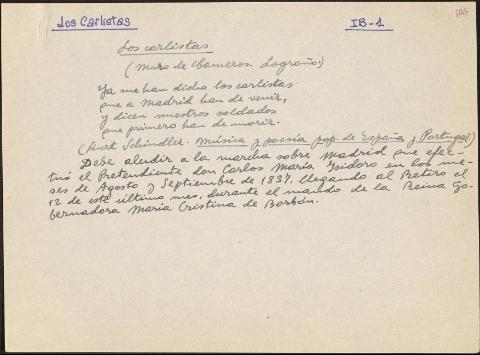 Los Carlistas
IB-1
106
Los carlistas
(Muro de Cameros. Logroño.)
Ya me han dicho los carlistas
que a Madrid han de venir,
y dicen nuestros soldados
que primero han de morir.
(Kurt Schindler. Música y poesía pop. de España y Portugal)
Debe aludir a la marcha sobre Madrid que efec-
tuó el Pretendiente don Carlos María Isidoro en los me-
ses de Agosto y Septiembre de 1837, llegando al Retiro el
12 de este último mes, durante el mando de la Reina Go-
bernadora María Cristina de Borbón.